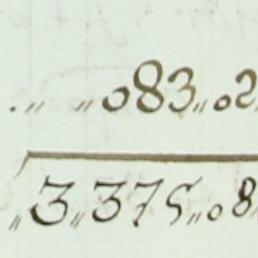 .,, ,,083,,02
,,3,,375,,08